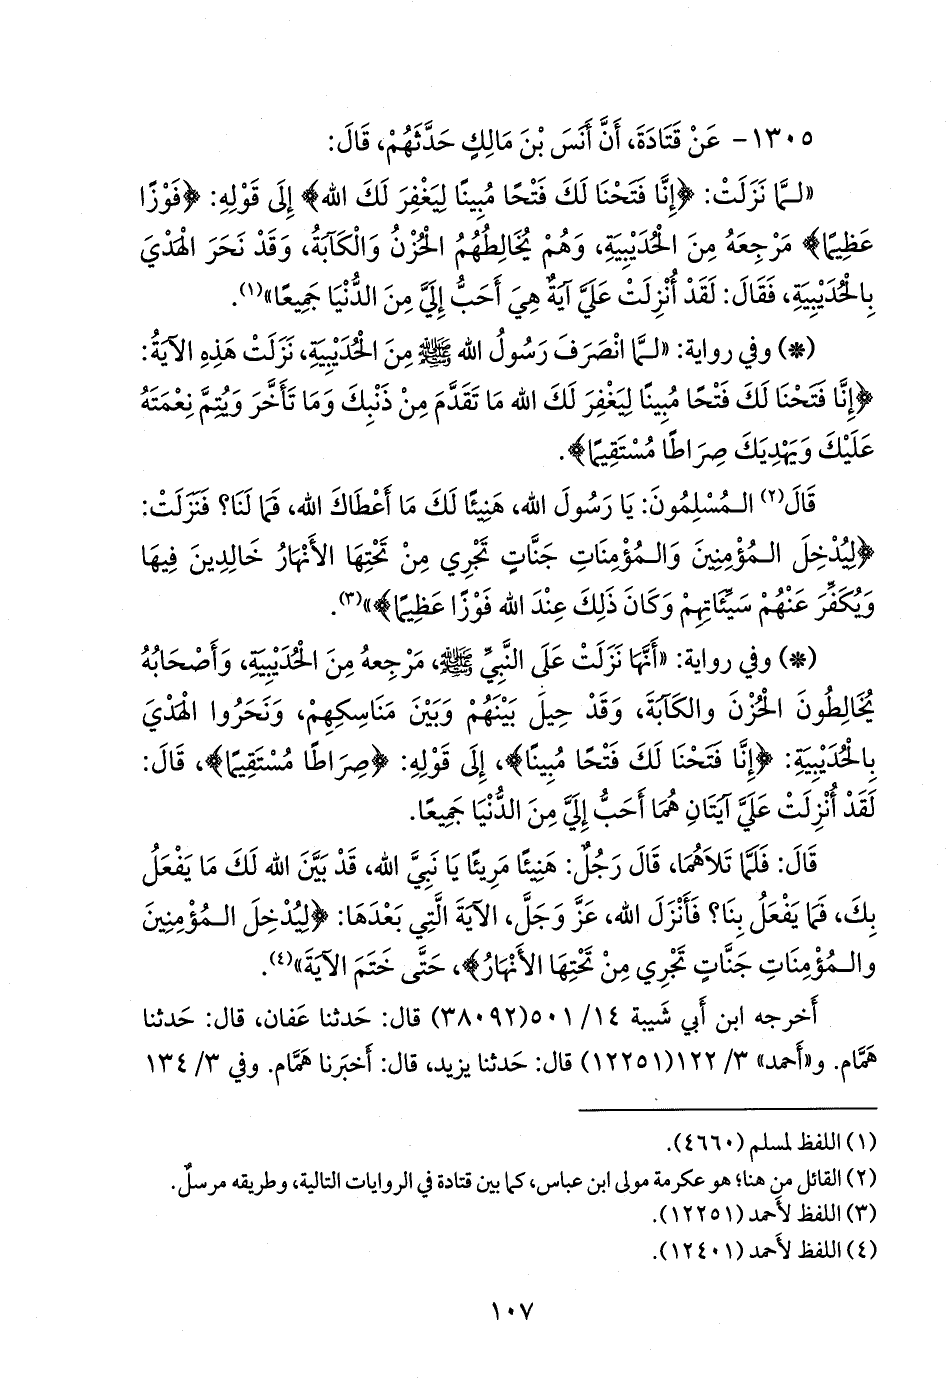 ١٣٠٥- عَنْ قَتَادَةَ، أَنَّ أَنَسَ بْنَ مَالِكٍ حَدَّثَهُمْ، قَالَ:
«لـمَّا نَزَلَتْ: ﴿إِنَّا فَتَحْنَا لَكَ فَتْحًا مُبِينًا لِيَغْفِرَ لَكَ الله﴾ إِلَى قَوْلِهِ: ﴿فَوْزًا
عَظِيمًا﴾ مَرْجِعَهُ مِنَ الْحُدَيْبِيَةِ، وَهُمْ يُخَالِطُهُمُ الْحُزْنُ وَالْكَآبَةُ، وَقَدْ نَحَرَ الْهَدْيَ
بِالْحُدَيْبِيَةِ، فَقَالَ: لَقَدْ أُنْزِلَتْ عَلَيَّ آيَةٌ هِيَ أَحَبُّ إِلَيَّ مِنَ الدُّنْيَا جَمِيعًا»(١).
(*) وفي رواية: «لـمَّا انْصَرَفَ رَسُولُ الله ﷺ مِنَ الْحُدَيْبِيَةِ، نَزَلَتْ هَذِهِ الآيَةُ:
﴿إِنَّا فَتَحْنَا لَكَ فَتْحًا مُبِينًا لِيَغْفِرَ لَكَ الله مَا تَقَدَّمَ مِنْ ذَنْبِكَ وَمَا تَأَخَّرَ وَيُتِمَّ نِعْمَتَهُ
عَلَيْكَ وَيَهْدِيَكَ صِرَاطًا مُسْتَقِيمًا﴾.
قَالَ(٢) الـمُسْلِمُونَ: يَا رَسُولَ الله، هَنِيئًا لَكَ مَا أَعْطَاكَ الله، فَمَا لَنَا؟ فَنَزَلَتْ:
﴿لِيُدْخِلَ الـمُؤْمِنِينَ وَالـمُؤْمِنَاتِ جَنَّاتٍ تَجْرِي مِنْ تَحْتِهَا الأَنْهَارُ خَالِدِينَ فِيهَا
وَيُكَفِّرَ عَنْهُمْ سَيِّئَاتِهِمْ وَكَانَ ذَلِكَ عِنْدَ الله فَوْزًا عَظِيمًا﴾»(٣).
(*) وفي رواية: «أَنَّهَا نَزَلَتْ عَلَى النَّبِيِّ ﷺ، مَرْجِعهُ مِنَ الْحُدَيْبِيَةِ، وَأَصْحَابُهُ
يُخَالِطُونَ الْحُزْنَ والكَآبَةَ، وَقَدْ حِيلَ بَيْنَهُمْ وَبَيْنَ مَنَاسِكِهِمْ، وَنَحَرُوا الْهَدْيَ
بِالْحُدَيْبِيَةِ: ﴿إِنَّا فَتَحْنَا لَكَ فَتْحًا مُبِينًا﴾، إِلَى قَوْلِهِ: ﴿صِرَاطًا مُسْتَقِيمًا﴾، قَالَ:
لَقَدْ أُنْزِلَتْ عَلَيَّ آيَتَانِ هُمَا أَحَبُّ إِلَيَّ مِنَ الدُّنْيَا جَمِيعًا.
قَالَ: فَلَمَّا تَلاَهُمَا، قَالَ رَجُلٌ: هَنِيئًا مَرِيئًا يَا نَبِيَّ الله، قَدْ بَيَّنَ الله لَكَ مَا يَفْعَلُ
بِكَ، فَمَا يَفْعَلُ بِنَا؟ فَأَنْزَلَ الله، عَزَّ وَجَلَّ، الآيَةَ الَّتِي بَعْدَهَا: ﴿لِيُدْخِلَ الـمُؤْمِنِينَ
والـمُؤْمِنَاتِ جَنَّاتٍ تَجْرِي مِنْ تَحْتِهَا الأَنْهَارُ﴾، حَتَّى خَتَمَ الآيَةَ»(٤).
أَخرجه ابن أَبي شَيبة ١٤/ ٥٠١(٣٨٠٩٢) قال: حَدثنا عَفان، قال: حَدثنا
هَمَّام. و«أَحمد» ٣/ ١٢٢(١٢٢٥١) قال: حَدثنا يزيد، قال: أَخبَرنا هَمَّام. وفي ٣/ ١٣٤
(١) اللفظ لمسلم (٤٦٦٠).
(٢) القائل من هنا؛ هو عكرمة مولى ابن عباس، كما بين قتادة في الروايات التالية، وطريقه مرسلٌ.
(٣) اللفظ لأَحمد (١٢٢٥١).
(٤) اللفظ لأَحمد (١٢٤٠١).
١٠٧